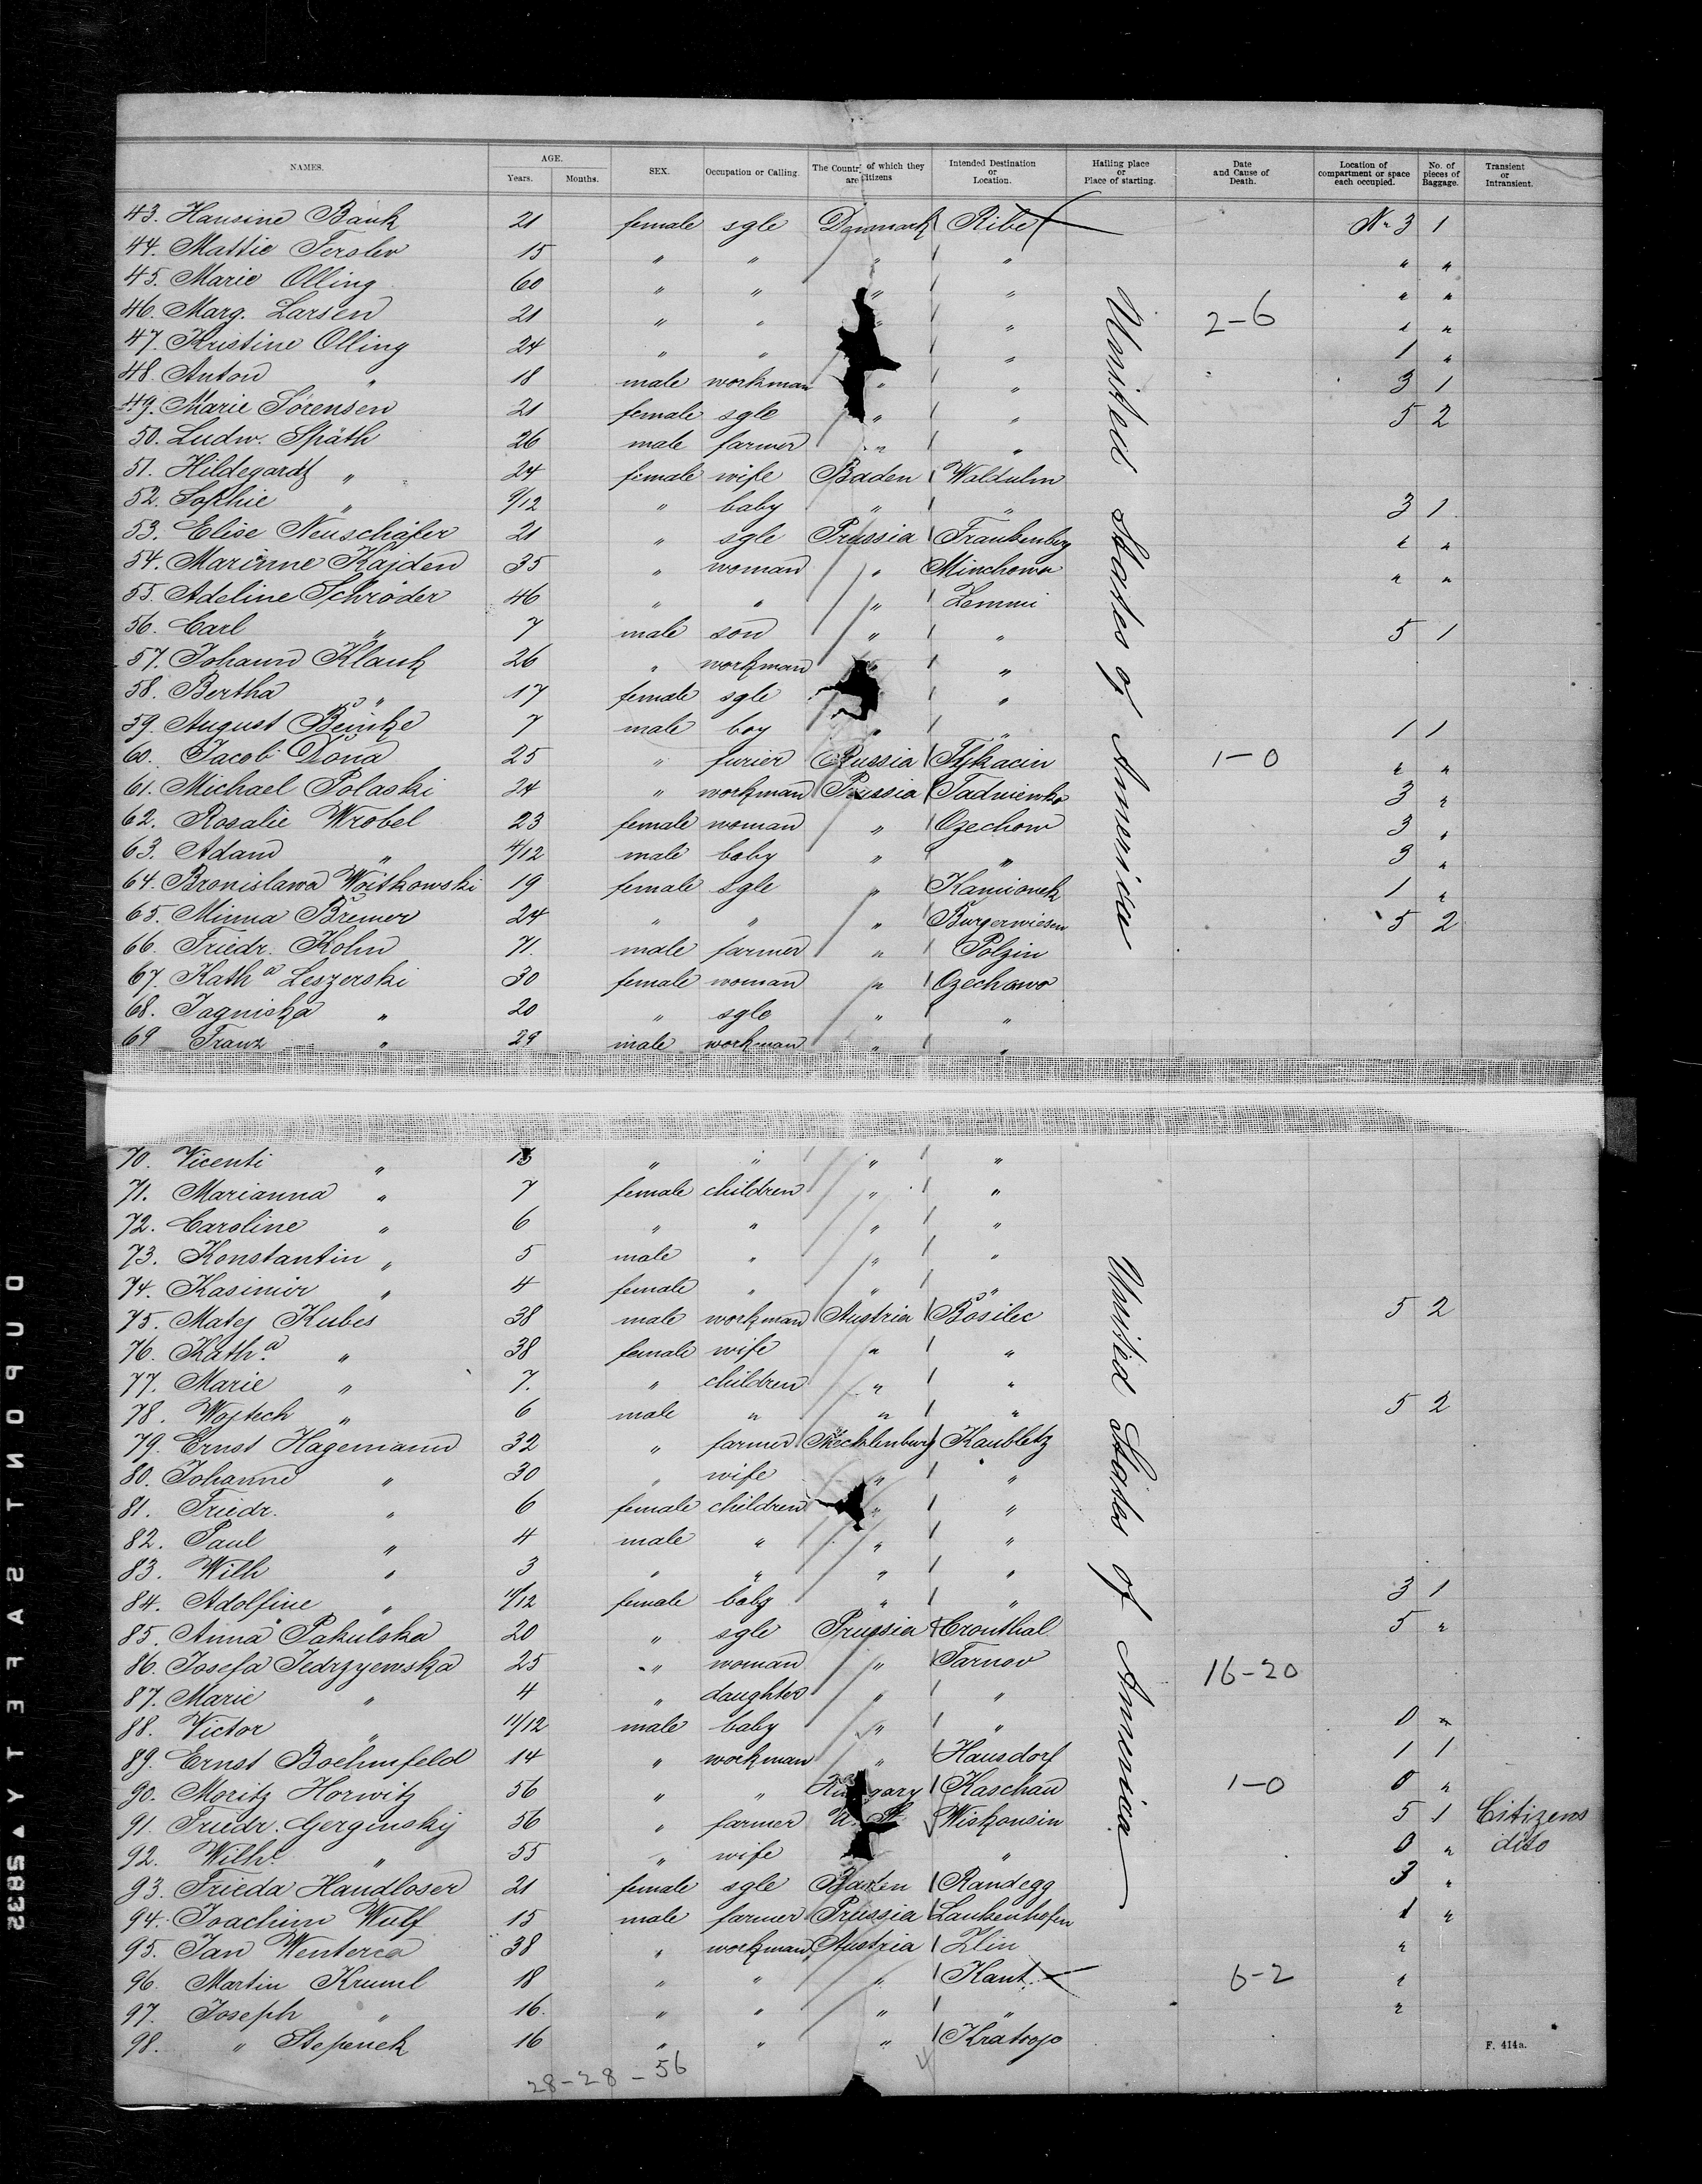 NAMES. AGE. Years. Months. SEX. Occupation or Calling. The Country of which they are Citizens Intended Destination or Location. Hailing place or Place of starting. Date and Cause of Death. Location of compartment or space each occupied. No. of pieces of Baggage. Transient or Intransient.
43. Hansine Bank 21 female sgle Denmark Ribe No 3 1
44. Mattie Terslev 15 " " " " " "
45. Marie Olling 60 " " " " " "
46. Marg. Larsen 21 " " " " 2-6 " "
47. Kristine Olling 24 " " " 1 "
48. Anton " 18 male workman " " 3 1
49. Marie Sörensen 21 female sgle " " 5 2
50. Ludw. Späth 26 male farmer " "
51. Hildegard " 24 female wife Baden Waldulm
52. Sophie " 9/12 " baby " " 3 1
53. Elise Neuschäfer 21 " sgle Prussia Frankenberg " "
54. Marinne Kajden 35 " woman " Minchowo " "
55. Adeline Schröder 46 " " " Zemmi
56. Carl " 7 male son " " 5 1
57. Johann Klauk 26 " workman " "
58. Bertha " 17 female sgle "
59. August Beinke 7 male boy " " 1 1
60. Jacob Dona 25 " furier Russia Tykacin 1-0 " "
61. Michael Polaski 24 " workman Prussia Tadniewko 3 "
62. Rosalie Wrobel 23 female woman " Ozechow 3 "
63. Adam " 4/12 male baby " " 3 "
64. Bronislawa Woitkowski 19 female sgle " Kamionek 1 "
65. Minna Bremer 24 " " " Burgerwiesen 5 2
66. Friedr. Kohn 71. male farmer " Polzin
67. Kath a Leszerski 30 female woman " Ozechowo
68. Jagniska " 20 " sgle " "
69 Franz " 29 male workman " "
70. Vicenti " " " " "
71. Marianna " 7 female children " "
72. Caroline " 6 " " " "
73. Konstantin " 5 male " " "
74. Kasimir " 4 female " " "
75. Matej Kubes 38 male workman Austria Bösilec 5 2
76. Kath. a " 38 female wife " "
77. Marie " 7. " children " "
78. Wojtech " 6 male " " " 5 2
79. Ernst Hagemann 32 " farmer Mecklenburg Kaubletz
80. Johanne " 30 " wife " "
81. Friedr. " 6 female children " "
82. Paul " 4 male " " "
83. Wilh " 3 " " " "
84. Adolfine " 11/12 female baby " " 3 1
85. Anna Pakulska 20 " sgle Prussia Cronthal 5 "
86. Josefa Jedrzyewska 25 " woman " Tarnov 16-20
87. Marie " 4 " daughter " "
88. Victor " 11/12 male baby " " 0 "
89. Ernst Boehmfeld 14 " workman " Hausdorf 1 1
90. Moritz Horwitz 56 " " Hungary Kaschau 1-0 0 "
91. Friedr. Gerginsky 56 " farmer U. S. Wiskonsin 5 1 Citizens
92. Wilh. " 55 " wife " 0 " dito
93. Frieda Handloser 21 female sgle Baden Randegg 3 "
94. Joachim Wulf 15 male farmer Prussia Lankenhofen 1 "
95. Jan Wenterca 38 " workman Austria Zlin "
96. Martin Kruml 18 " " " Kant. 6-2 "
97. Joseph " 16. " " " " "
98. " Stepenek 16 " " " Kratrojo
28-28-56
F. 414a.
United States of America
United States of America
DUPONT SAFETY 5832